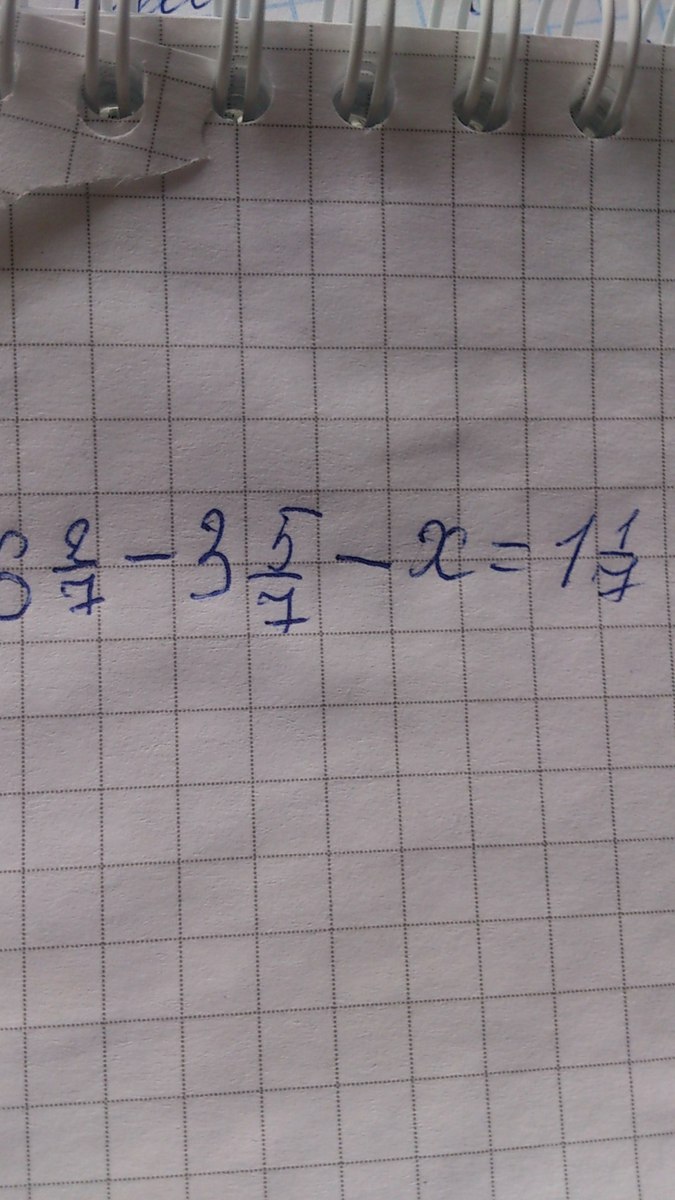 6 2/7 - 3 5/7 - x = 1 1/7